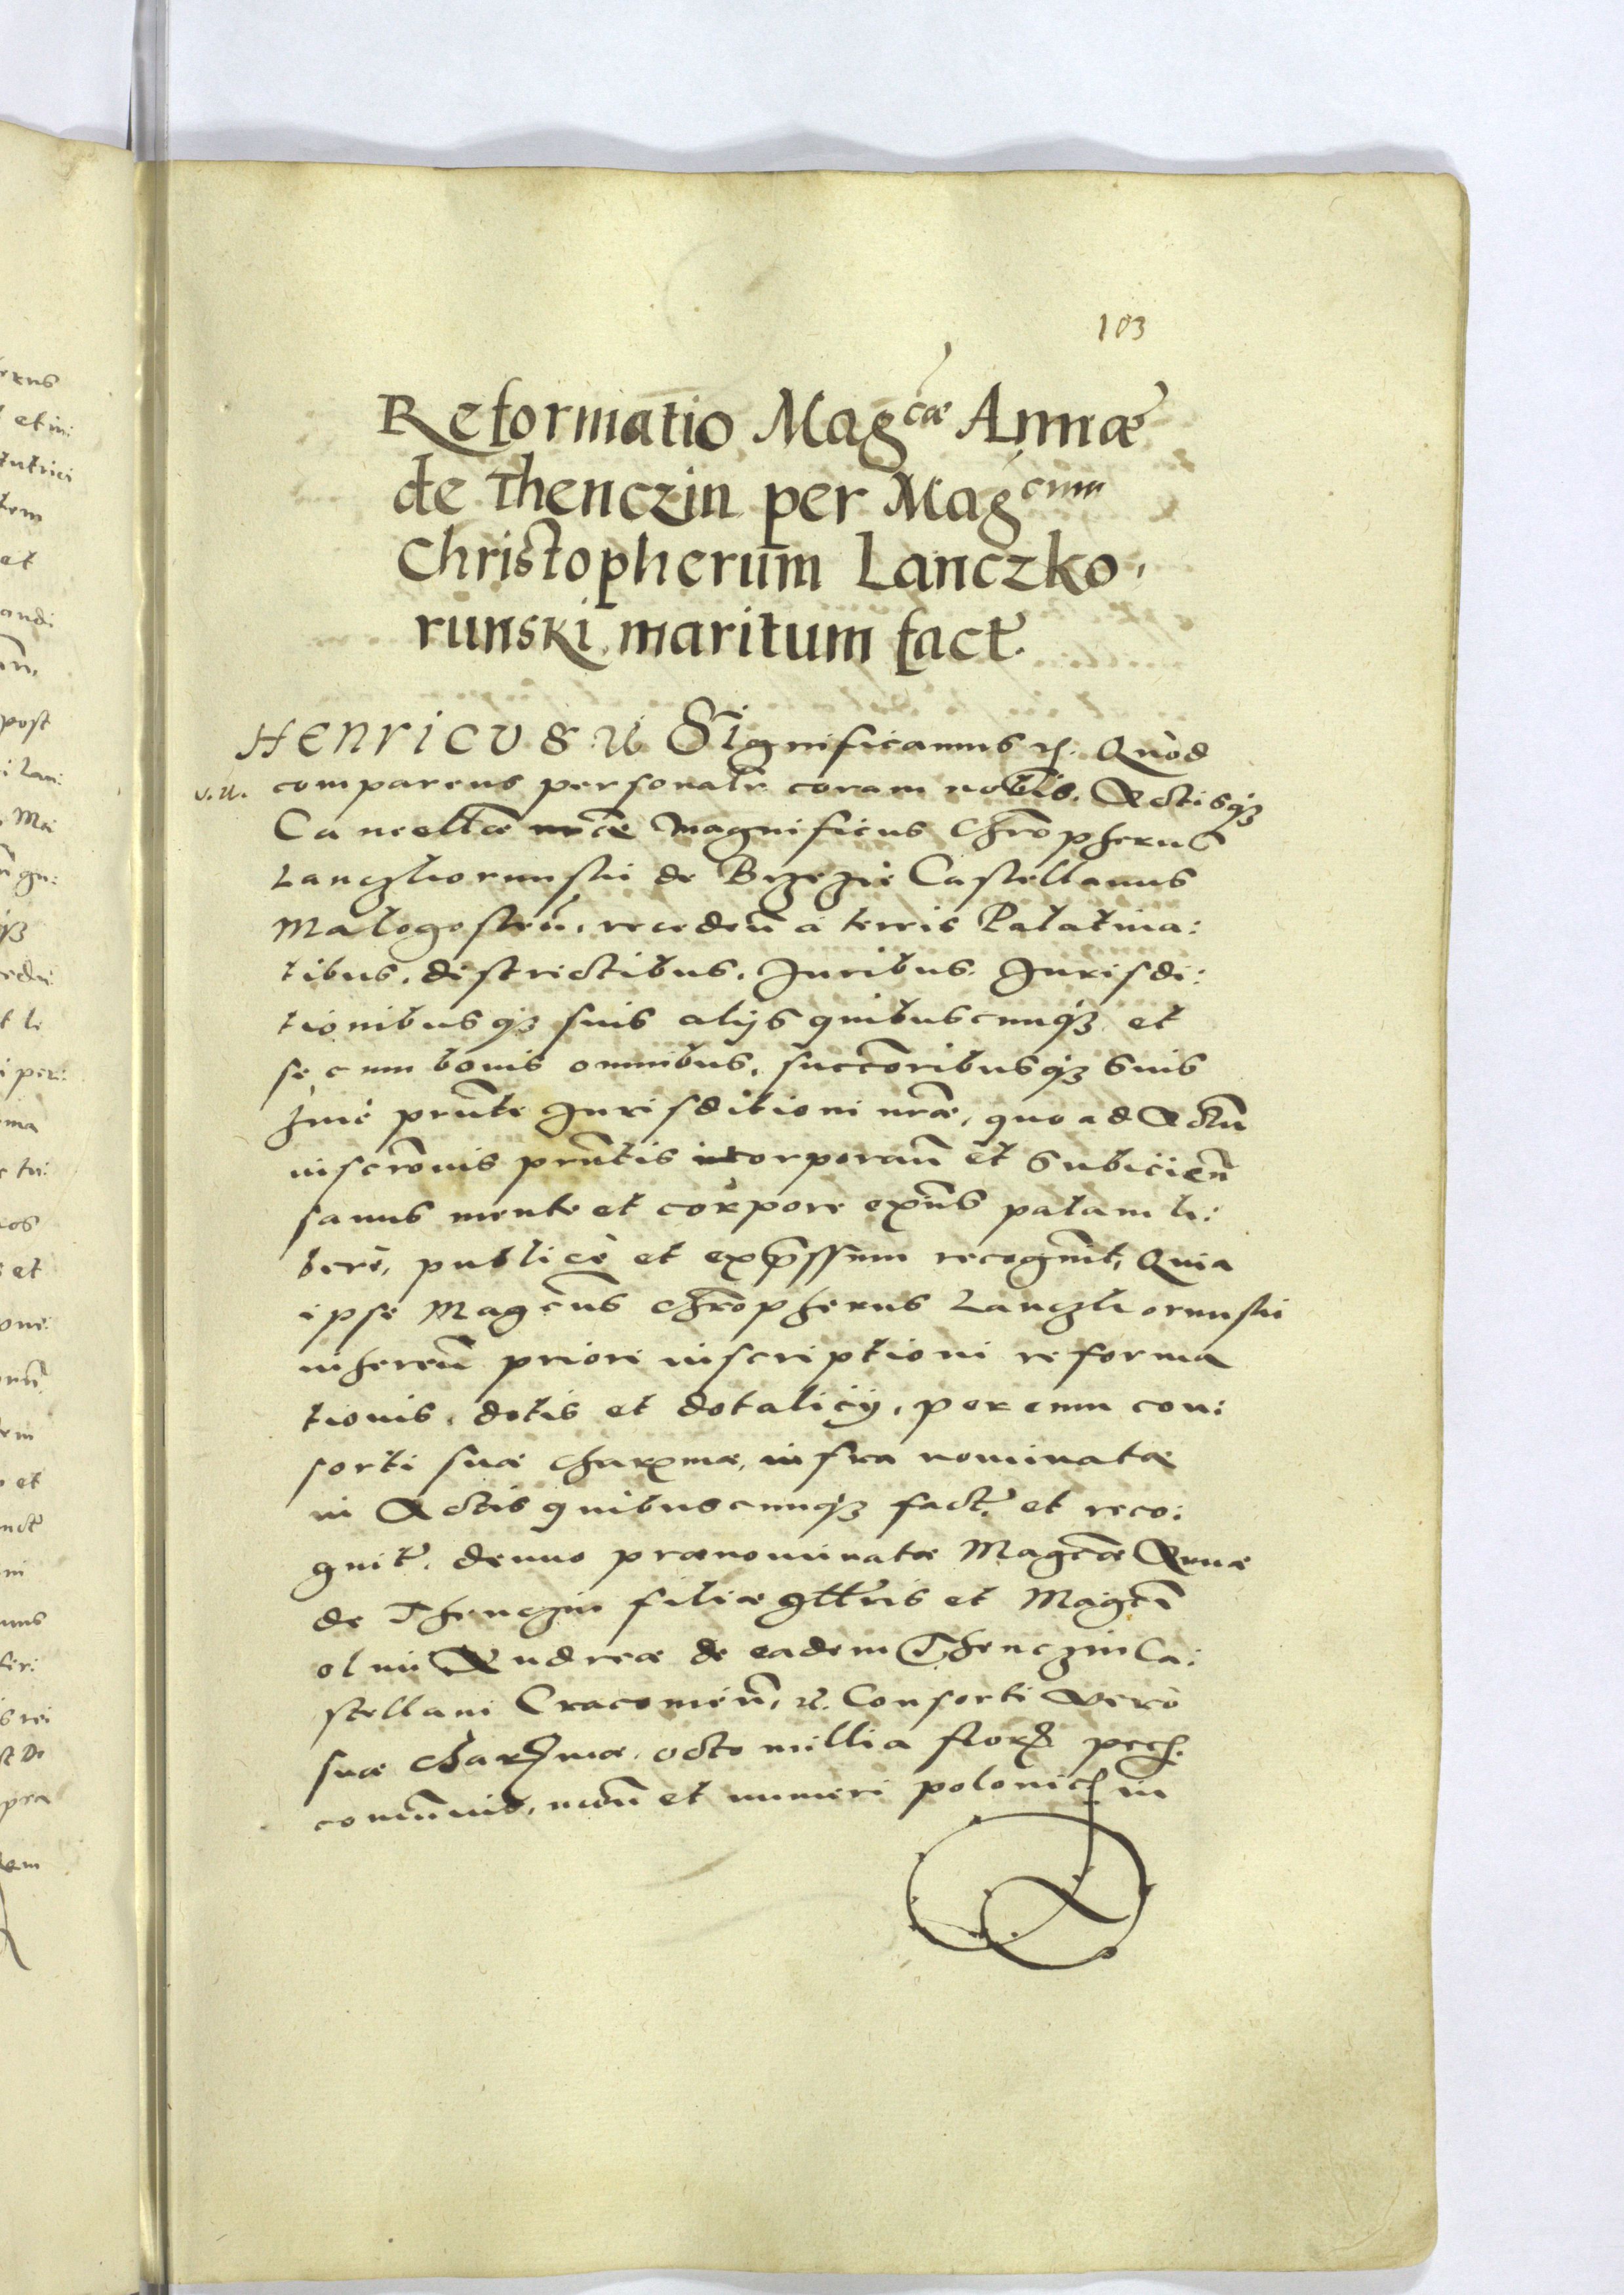 103
Reformatio Mag^cæ Annæ
de Thenczin per Mag^cum
Christopherum Lanczko,
runski maritum fact.
HENRICVS Significamus Quod
v.u. comparens personalr coram nobis. Actisq₃
Cancellæ nræ Magnificus Chropherus
Lanczkorunski de Brzezie Castellanus
Malogosteñ, recedeñ a terris Palatina:
tibus, districtibus, Juribus Jurisdi:
tionibusq₃ suis alijs quibuscunq₃ et
se cum bonis omnibus, succoribusq₃ suis
huic prñte Jurisditioni nræ, quo ad Actũ
inscronis prñtis incorporañ et Subijcieñ
sanus mente et corpore exñs palam li:
berè, publicè et exprssum recognit, Quia
ipse Magcus Chropherus Lanczkorunski
inhereñ priori inscriptioni reforma
tionis, dotis et dotalicij, per eum con:
sorti suæ charmæ, infra nominatæ
in Actis quibuscunq₃ fact. et reco:
gnit. denuo prænominatæ Magcæ Annæ
de Thenczin filiæ et Magci
olim Andreæ de eadem Thenczin Ca:
stellani Cracovieñ, Consorti vero
suæ charmæ, octo millia flor pecꝭ
comũnis, moñ et numeri polonicꝭ in